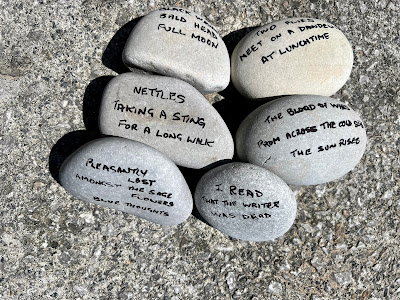 BALD HEAD
FULL MOON
TWO FLIES
MEET ON A DANDELI
AT LUNCHTIME
NETTLES
TAKING A STING
FOR A LONG WALK
THE BLOOD OF
FROM ACROSS THE COLD SEA
THE SUN RISES
PEASANTRY
LOST
AMONGST THE SAGE
FLOWERS
BLUE THOUGHTS
I READ
THAT THE WRITER
WAS DEAD